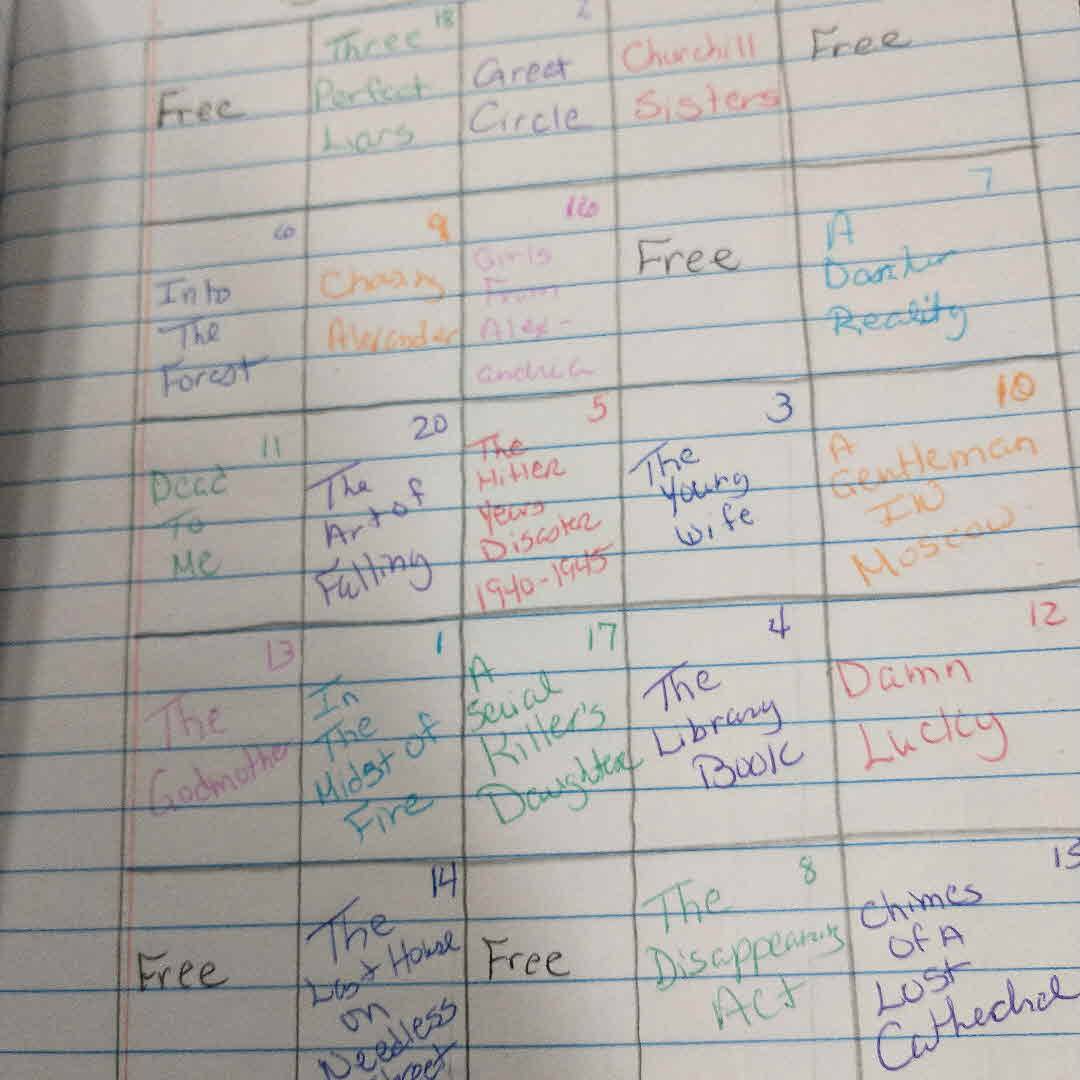 Free
18
Three
Perfect
Liars
2
Great
Circle
Churchill
Sisters
Free
6
Into
The
Forest
9
Chasing
Alexander
16
Girls
From
Alex-
andria
Free
7
A
Darker
Reality
11
Dead
To
Me
20
The
Art of
Falling
5
The
Hitler
Years
Disaster
1940-1945
3
The
Young
Wife
10
A
Gentleman
IN
Moscow
13
The
Godmother
1
In
The
Midst of
Fire
17
A
Serial
Killer's
Daughter
4
The
Library
Book
12
Damn
Lucky
Free
14
The
Last House
on
Needless
Street
Free
8
The
Disappearing
Act
15
Chimes
Of A
Lost
Cathedral